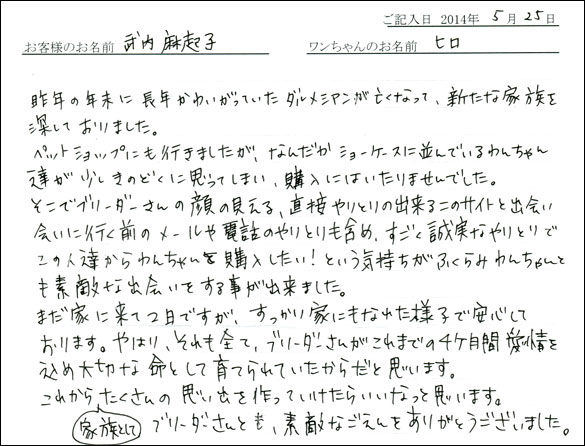 ご記入日 2014年 5月25日
お客様のお名前 武内麻起子 ワンちゃんのお名前 ヒロ
昨年の年末に長年かわいがっていたダルメシアンが亡くなって、新たな家族を
深しておりました。
ペットショップにも行きましたが、なんだかショーケースに並んでいるわんちゃん
達が少しきのどくに思ってしまい、購入にはいたりませんでした。
そこでブリーダーさんの顔の見える、直接やりとりの出来るこのサイトと出会い
会いに行く前のメールや電話のやりとりも含め、すごく誠実なやりとりで
この人達からわんちゃんを購入したい!という気持ちがふくらみわんちゃんと
も素敵な出会いをする事が出来ました。
まだ家に来て2日ですが、すっかり家にもなれた様子で安心して
おります。やはり、それも全て、ブリーダーさんがこれまでの4ケ月間愛情を
込め大切な命として育てられていたからだと思います。
これから家族としてたくさんの思い出を作っていけたらいいなっと思います。
ブリーダーさんとも、素敵なごえんをありがとうございました。